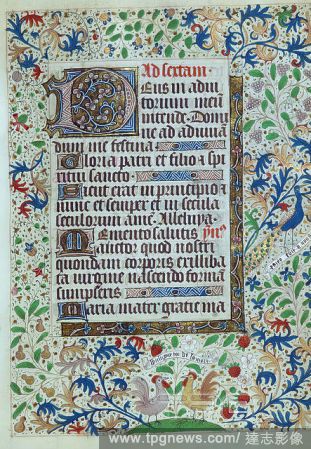 Ad sextam.
Deus in adiu
torium meū
intende. Domi
ne ad adiuuā
dum me festina.
Gloria patri et filio et spi
ritui sancto.
Sicut erat in principio et
nunc et semper et in secula
seculorum amē. Alleluya.
Memento salutis
auctor quod nostri
quondam corporis ex illiba
ta uirgine nascendo formā
sumpseris
Maria mater gratie ma
www.tpgnews.com/ 達志影像